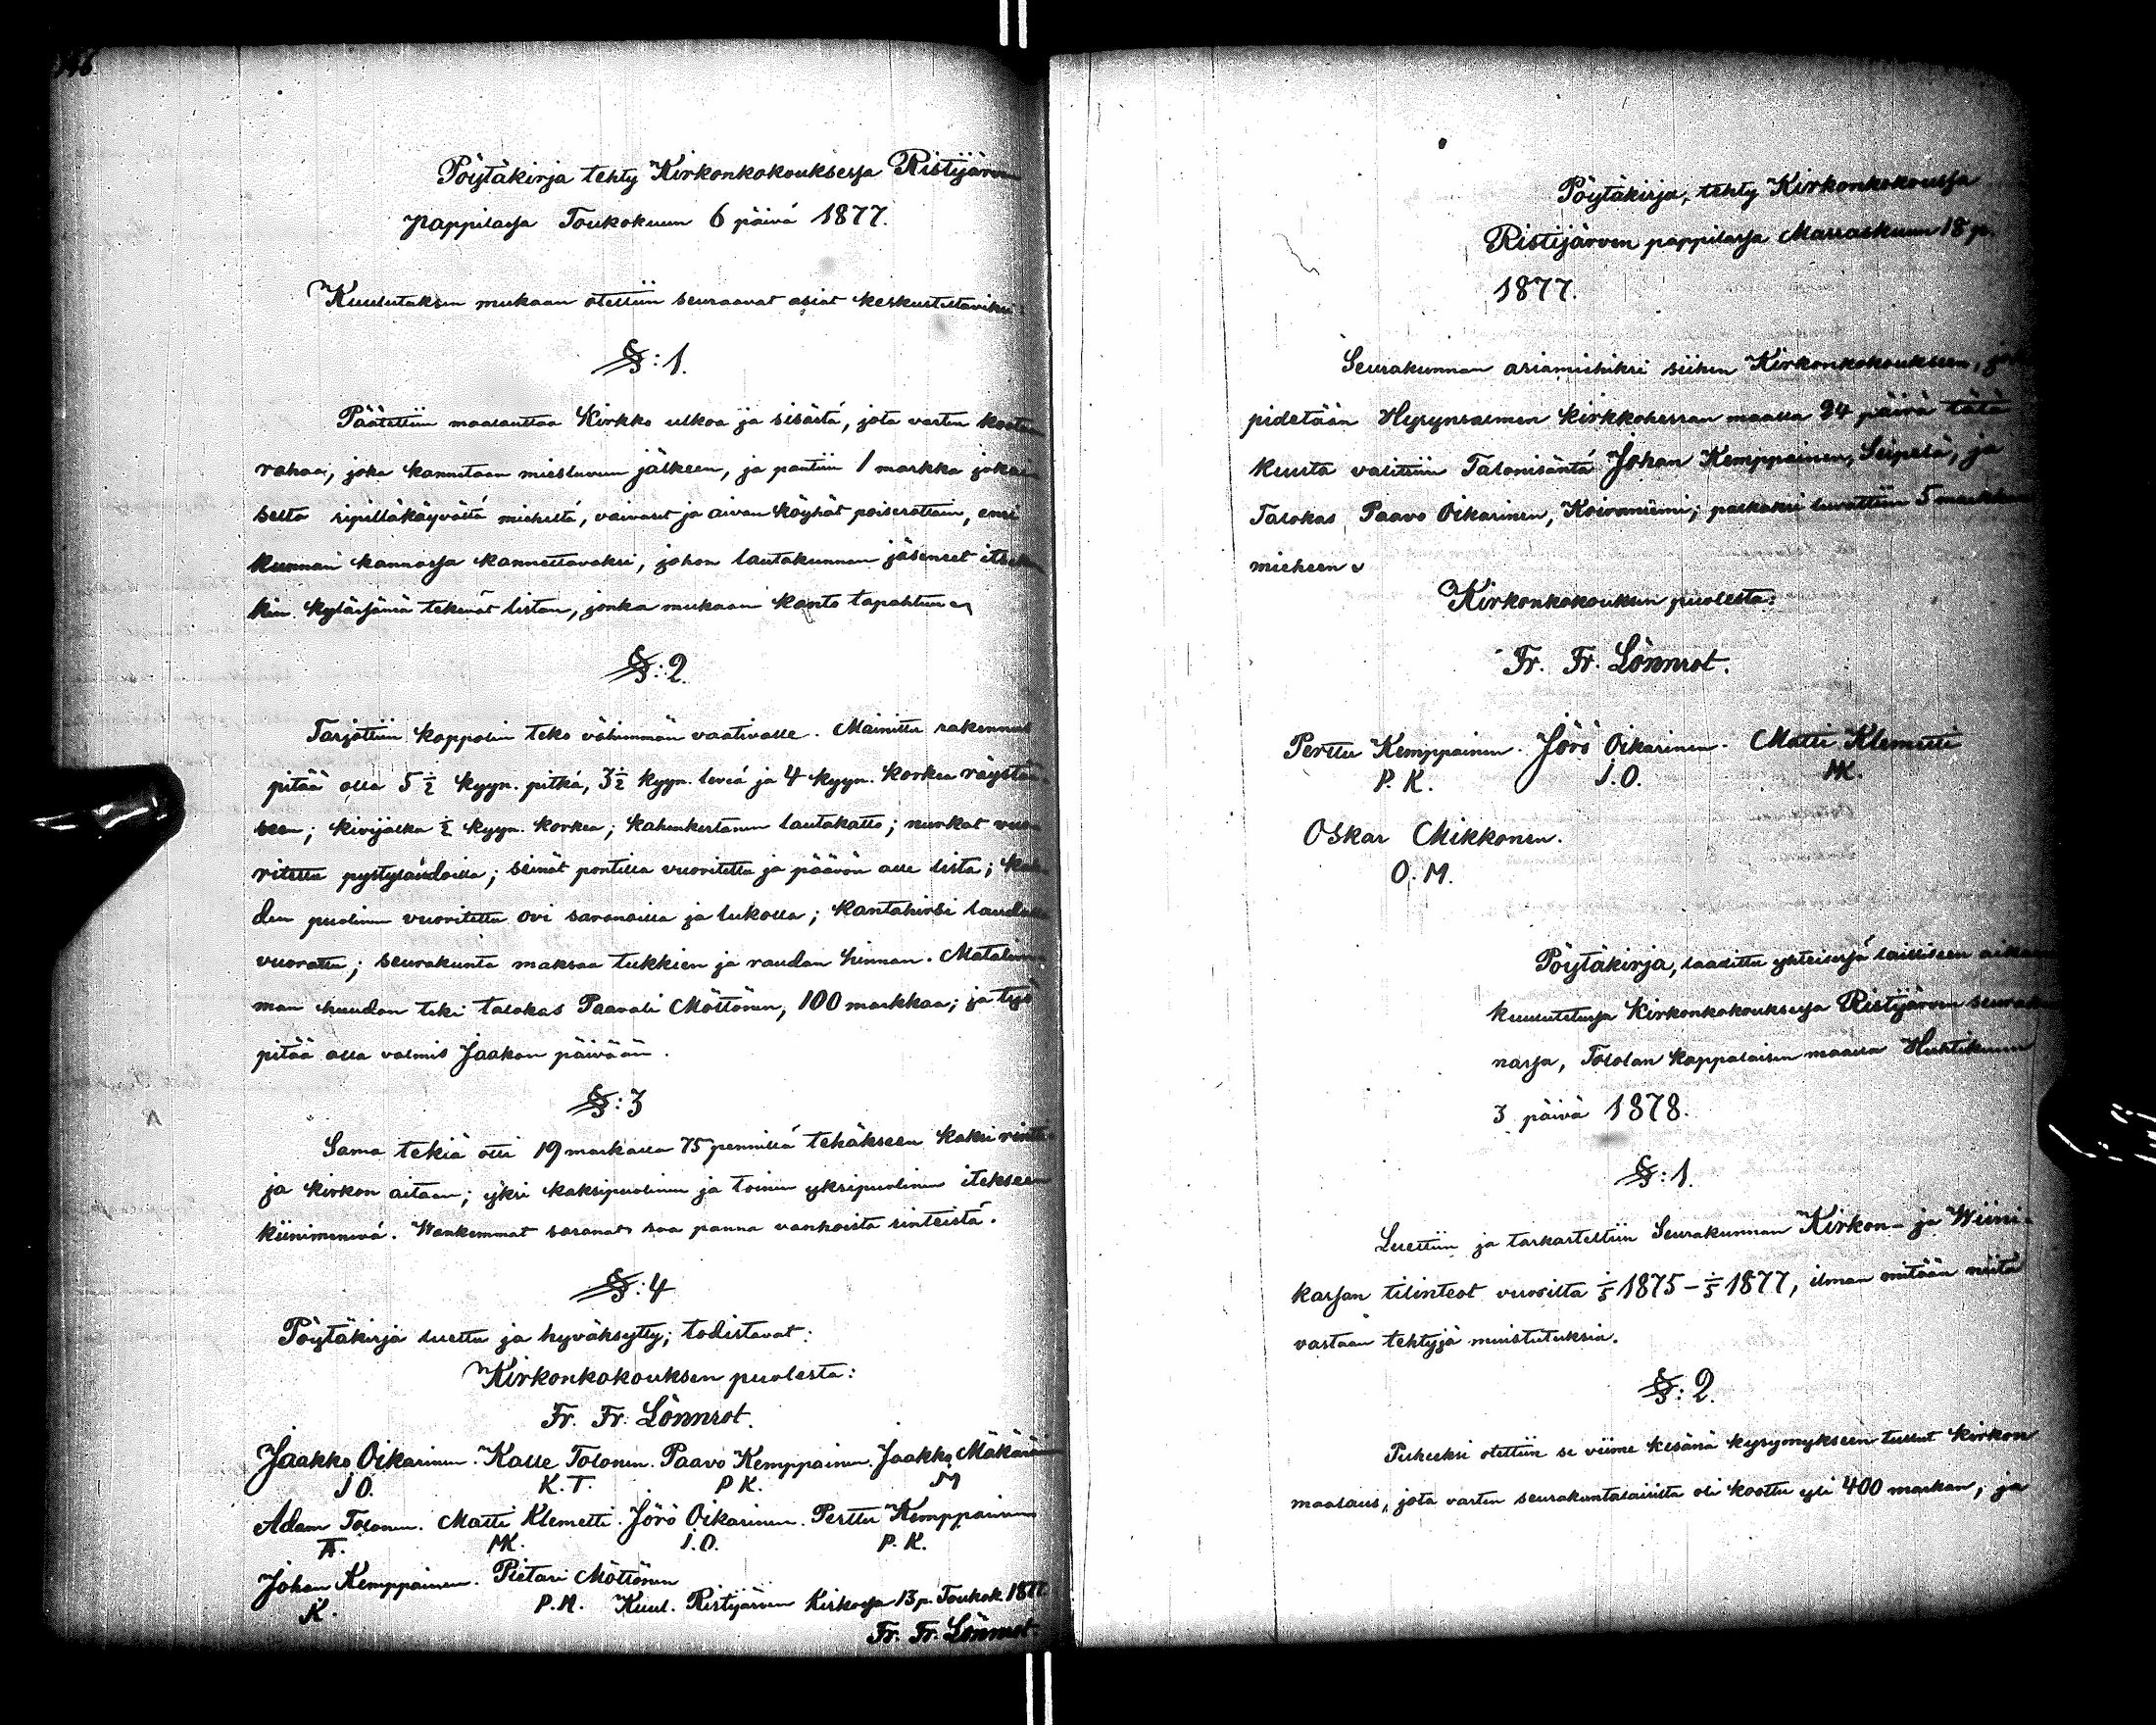 Pöytäkirja tehty Kirkonkokouksessa Ristijärven
pappilassa Toukokuun 6 päivä 1877.
Kuulutuksen mukaan otettiin seuraavat asiat keskusteltaviksi:
§:1.
Päätettiin maalauttaa Kirkko ulkoa ja sisästä, jota varten kootaan
rahaa, joka kannetaan miesluvun jälkeen, ja pantiin 1 markka jokai-
selta ripilläkäyvältä mieheltä, vaivaset ja aivan köyhät poiserottain, ensi
kunnan kannossa kannettavaksi, johon lautakunnan jäsenet itse
kin kylässänsä tekevät listan, jonka mukaan kanto tapahtuu.
§:2.
Tarjottiin koppelin teko vähimmän vaativalle. Mainittu rakennus
pitää olla 5 1/2 kyyn. pitkä, 3 1/2 kyyn. leviä ja 4 kyyn. korkea räystää-
seen; kivijalka 1/2 kyyn. korkea; kahenkertanen lautakatto; nurkat vuo-
ritettu pystylaudoilla; seinät pontilla vuoritettu ja päävön alle lista; kah-
den puolinen vuoritettu ovi saranoilla ja lukolla; kantahirsi laudalla
vuorattu; seurakunta maksaa tukkien ja raudan hinnan. Matalim-
man huudon teki talokas Paavali Möttönen, 100 markkaa; ja työ
pitää olla valmis Jaakon päivään.
§:3
Sama tekiä otti 19 markalla 75 pennillä tehäkseen kaksi rinte-
ja kirkon aitaan; yksi kaksipuolinen ja toinen yksipuolinen itekseen
kiinimenevä. Wankemmat saranat saa panna vanhoista rinteistä.
§:4
Pöytäkirja luettu ja hyväksytty; todistavat:
Kirkonkokouksen puolesta:
Fr. Fr. Lönnrot.
Jaakko Oikarinen. Kalle Tolonen. Paavo Kemppainen. Jaakko Mäkäräinen
J O. K. T. P K. M
Adam Tolonen. Matti Klemetti. Jörö Oikarinen. Perttu Kemppainen
A. MK. J. O. P. K.
Johan Kemppainen. Pietari Möttönen
K. P. M. Kuul. Ristijärven Kirkossa 13 p. Toukok. 1877
Fr. Fr. Lönnrot.
Pöytäkirja, tehty Kirkonkokoussa
Ristijärven pappilassa Marraskuun 18 p.
1877.
Seurakunnan asiamiehiksi siihen Kirkonkokoukseen, joka
pidetään Hyrynsalmen kirkkoherran maalla 24 päivä tätä
kuuta valittiin Talonisäntä Johan Kemppainen, Seipelä, ja
Talokas Paavo Oikarinen, Koivuniemi; palkaksi luvattiin 5 markkaa
mieheen.
Kirkonkokouksen puolesta:
Fr. Fr. Lönnrot.
Perttu Kemppainen. Jörö Oikarinen. Matti Klemetti
P. K. J. O. MK.
Oskar Mikkonen.
O. M.
Pöytäkirja, laadittu yhteisessä lailliseen aikaan
kuulutetussa Kirkonkokouksessa Ristijärven seurakun-
nassa, Tololan kappalaisen maalla Huhtikuun
3 päivä 1878.
§:1.
Luettiin ja tarkasteltiin Seurakunnan Kirkon- ja Wiini-
kassan tilinteot vuosilta 1/5 1875 - 1/5 1877, ilman mitään niitä
vastaan tehtyjä muistutuksia.
§:2.
Puheeksi otettiin se viime kesänä kysymykseen tullut kirkon
maalaus, jota varten seurakuntalaisilta oli koottu yli 400 markan; ja